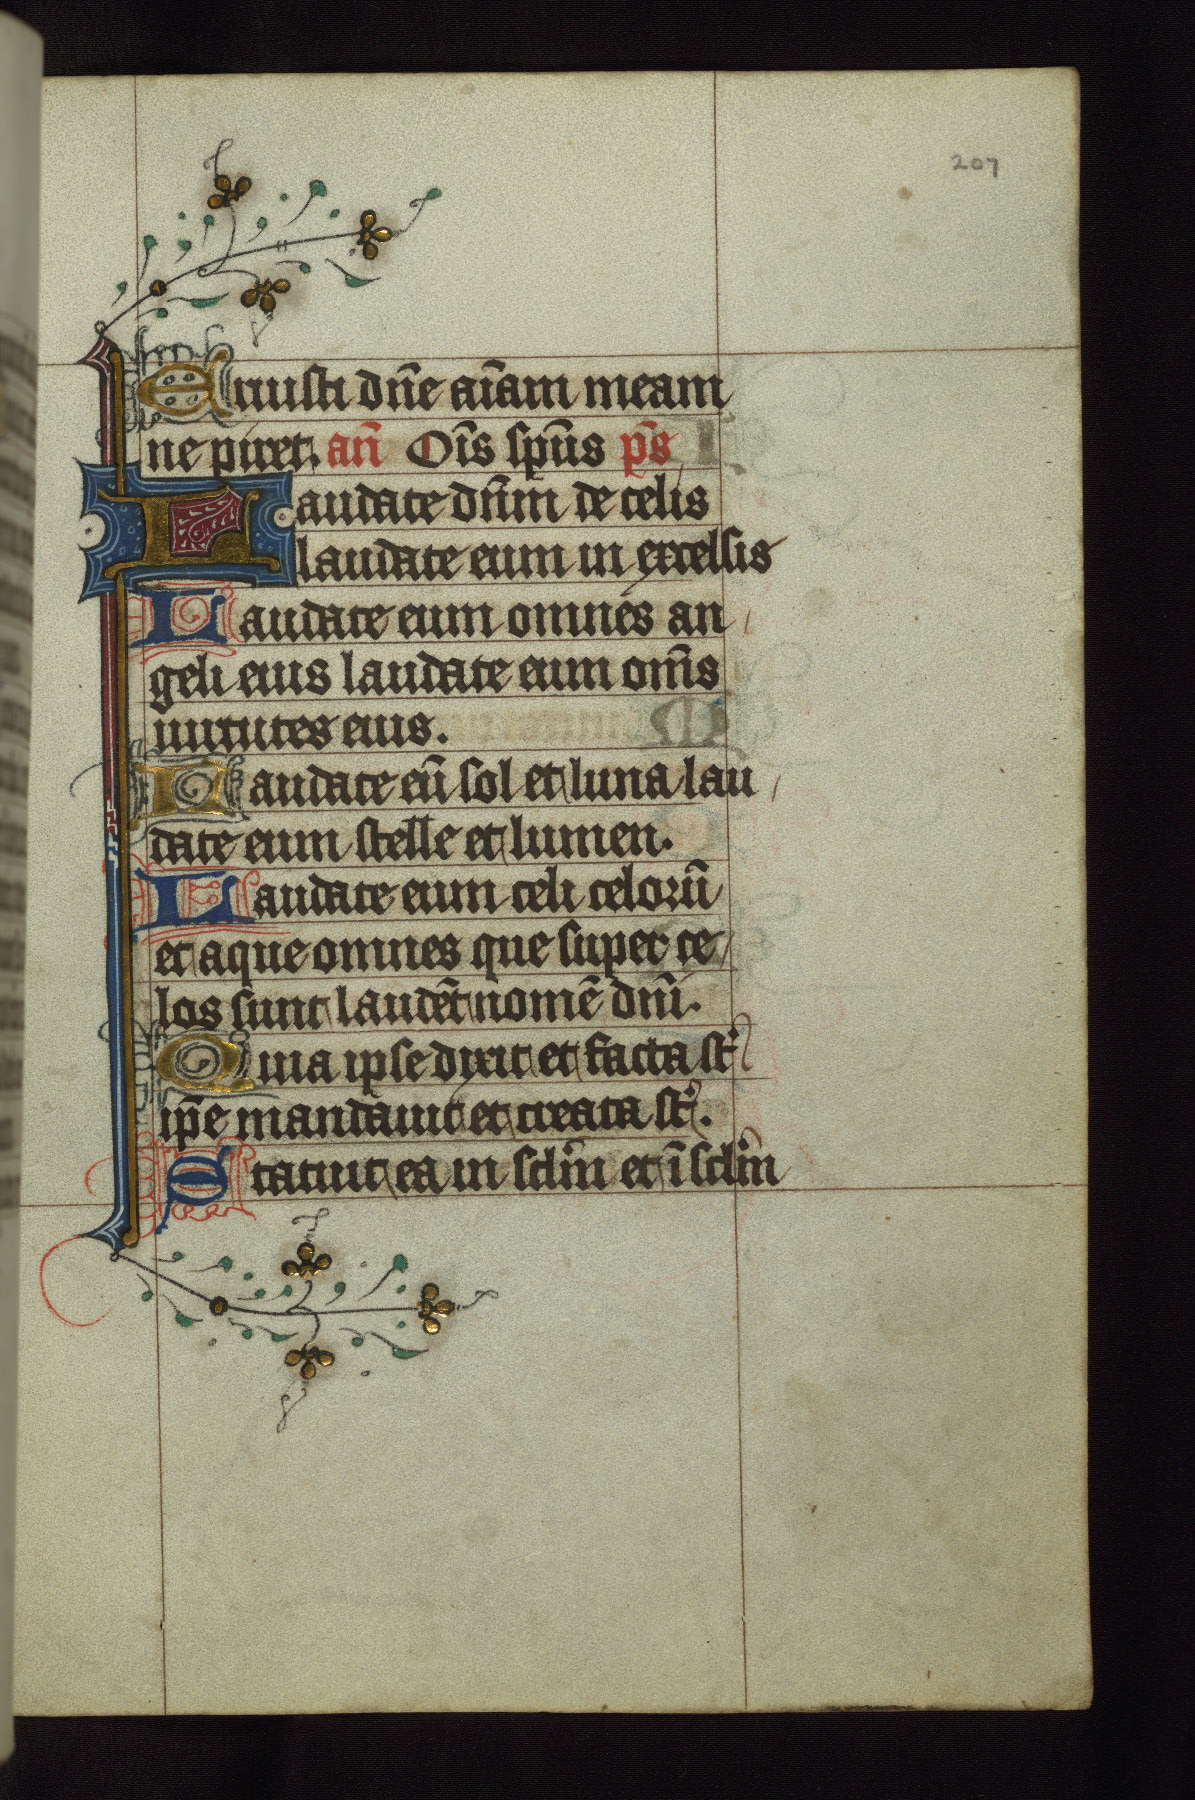 207
Eruisti dn̄e aīam meam
ne piret. an̄ Oīs sp̄us p̄s
Laudate dn̄m de celis
laudate eum in excelsis
Laudate eum omnes an
geli eius laudate eum om̄s
uirtutes eius.
Laudate eū sol et luna lau
date eum stelle et lumen.
Laudate eum celi celorū
et aque omnes que super ce
los sunt laudēt nomē dn̄i.
Quia ipse dixit et facta st̄
ip̄e mandauit et creata st̄.
Statuit ea in sclm̄ et ī sclm̄